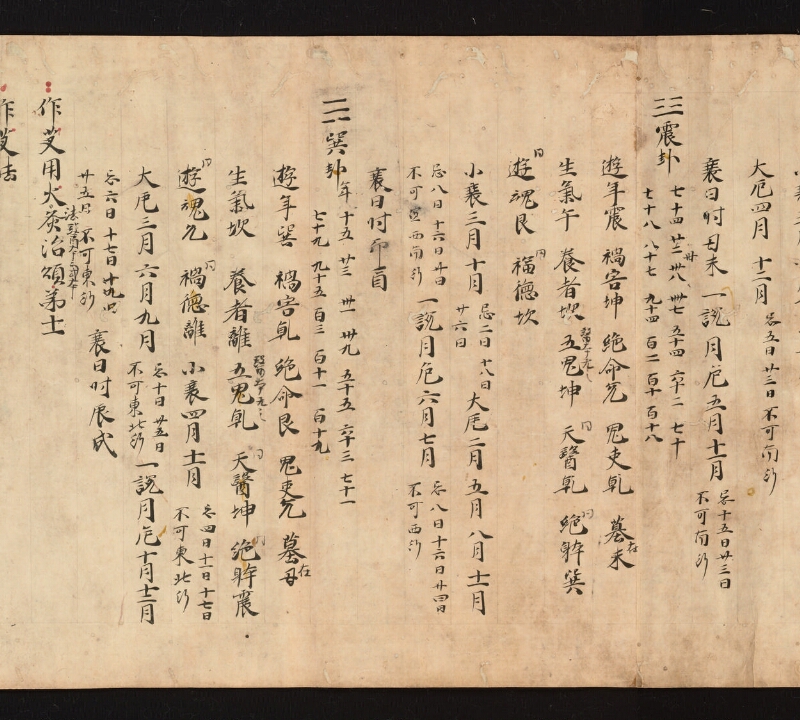 大厄四月 十二月 忌五日廿三日不可南行
衰日时丑未 一説月厄五月十二月 忌十五日廿三日
不可南行
☳震卦 七十四 廿二 卅八 卌七 五十四 六十二 七十
七十八 八十七 九十四 百二 百十 百十八
遊年震 禍害坤 絶命兌 鬼吏乾 墓在未
生氣午 養者坎 五鬼坤 天醫乾 絶躰巽
遊魂艮 福德坎
小衰三月十月 忌二日十八日 大厄二月五月八月十一月
廿六日
忌八日十六日廿四日
不可西南行 一説月厄六月七月 忌八日十六日廿四日
不可西行
衰日时卯酉
☴巽卦 年十五 廿三 卅一 卅九 五十五 六十三 七十一
七十九 九十五 百三 百十一 百十九
遊年巽 禍害乾 絶命艮 鬼吏兌 墓在丑
生氣坎 養者離 五鬼乾 天醫坤 絶躰震
遊魂兌 福德離 小衰四月十一月 忌四日十一日十七日
不可東北行
大厄三月六月九月 忌十日廿五日
不可東北行 一説月厄十月十二月
忌六日十七日十九日
廿五日不可東行 衰日时辰戌
作艾用火灸治頌第十一
作艾法